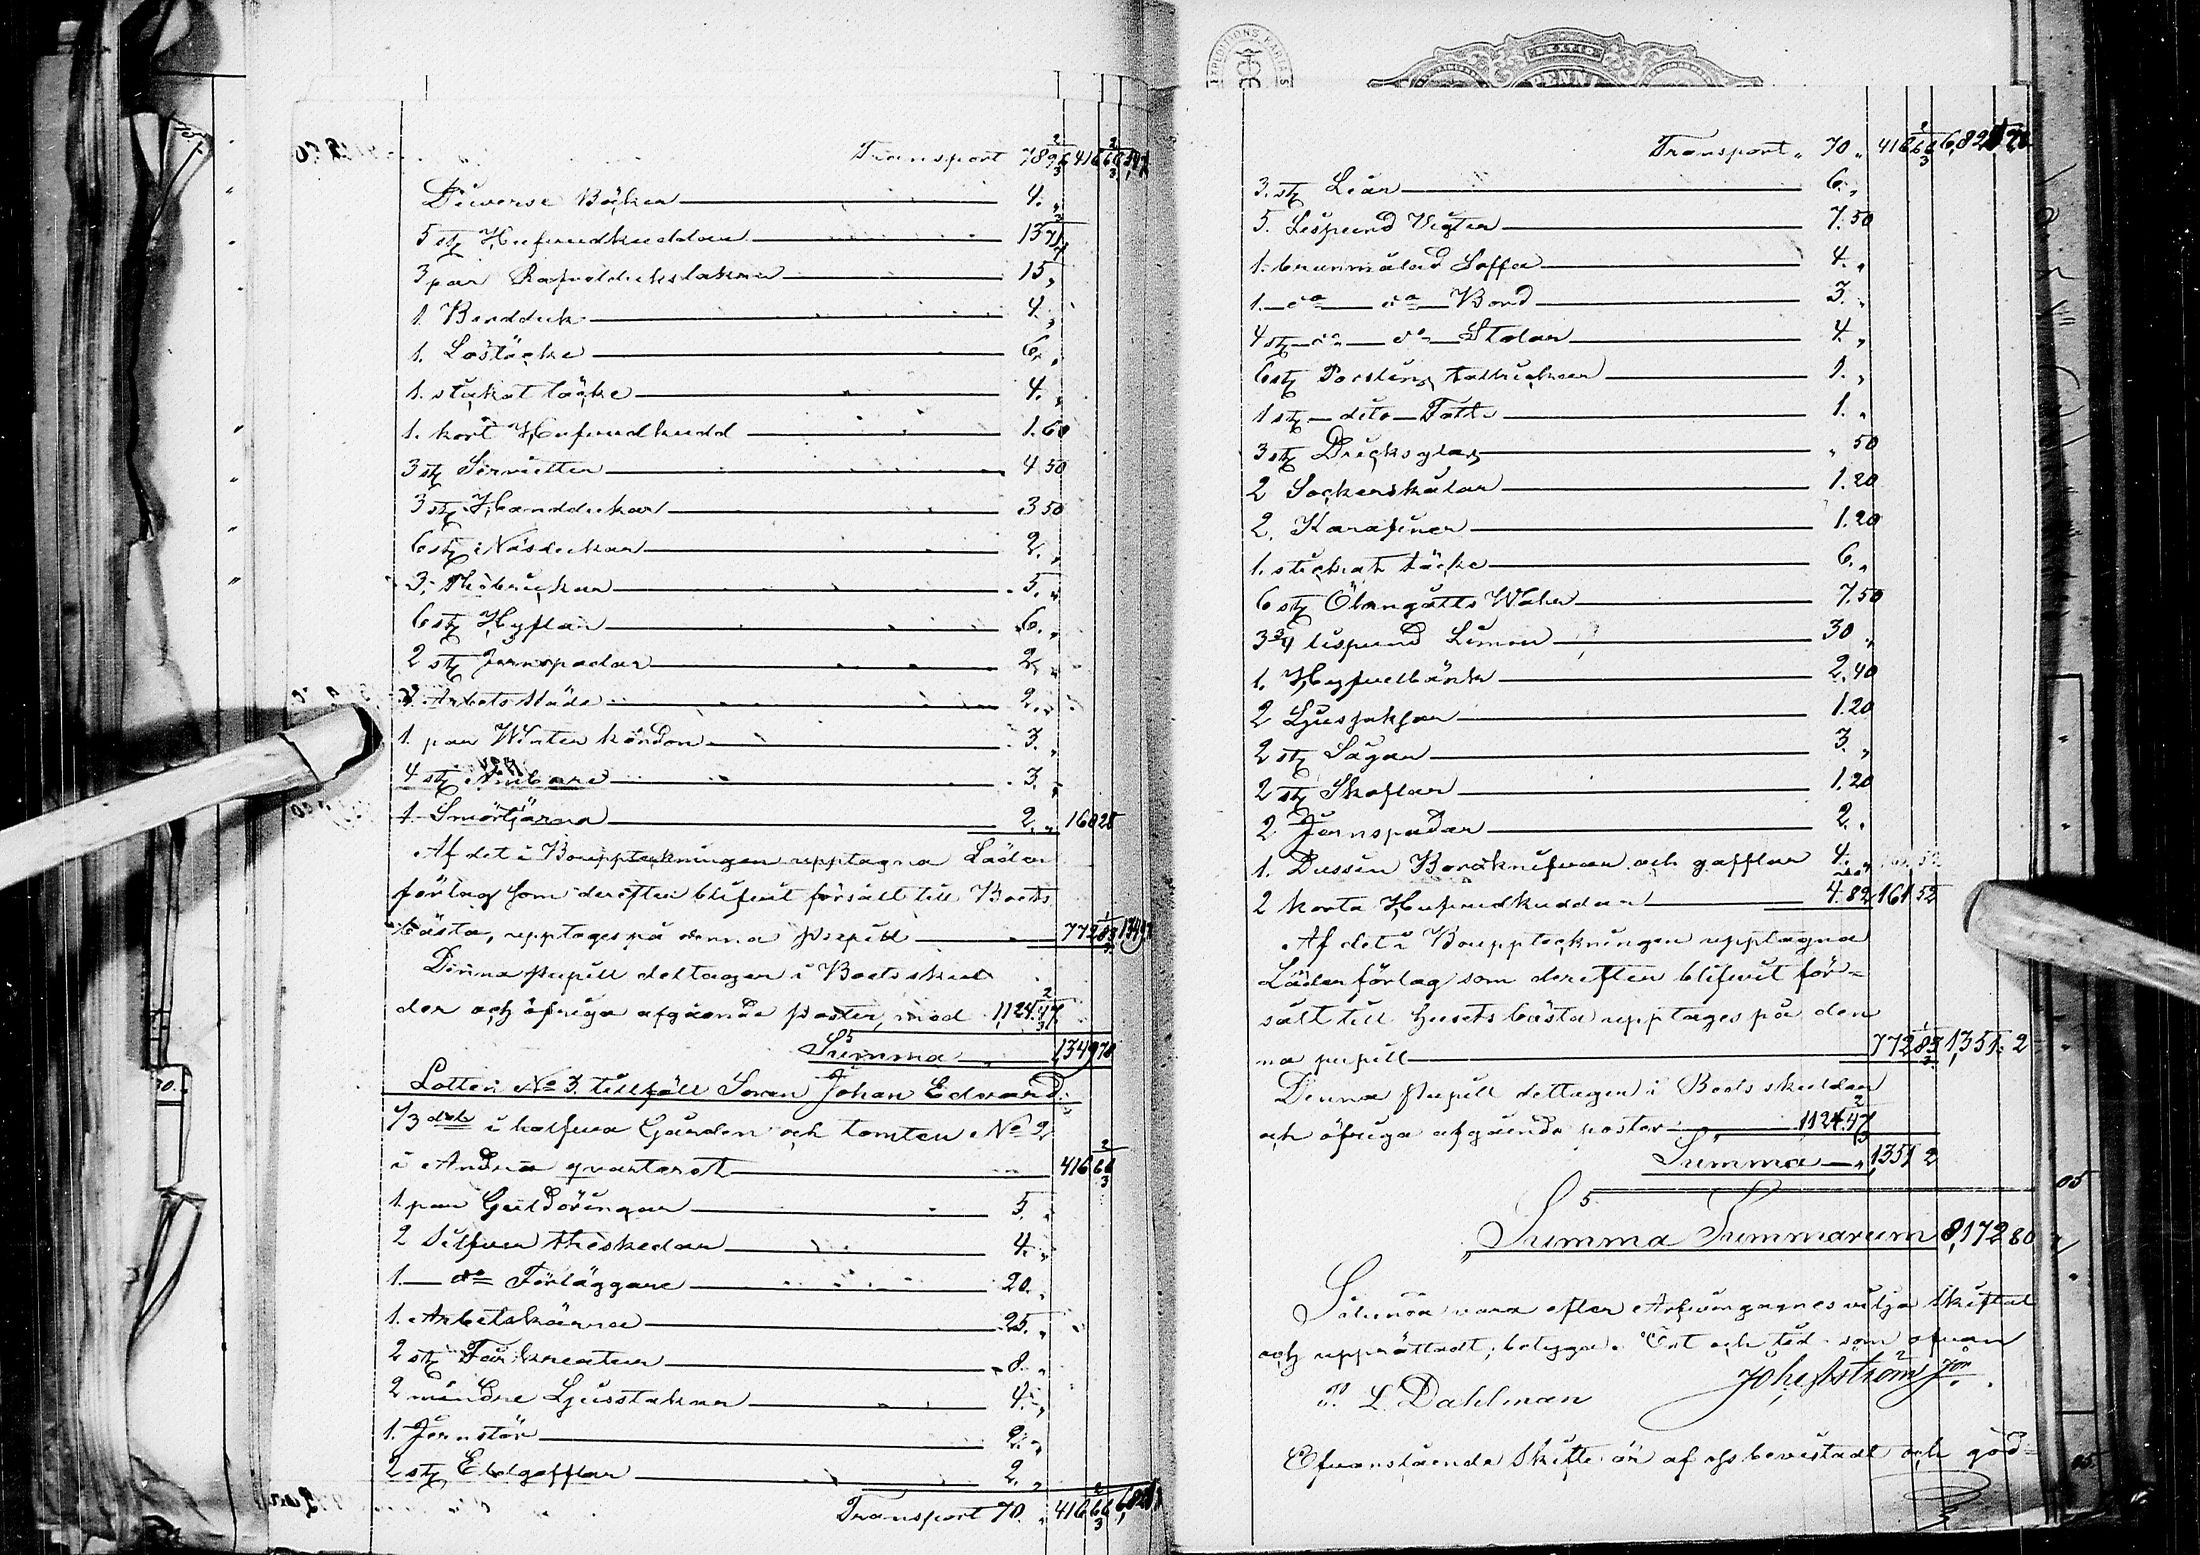 Transport 78 96 2/3 416 66 2/3
Diverse Böcker 4. „
5 stz Hufvudkuddar 13 71
3 par Rafvelduckslakan 15 „
1. Bordduk 4. „
1. Lostäcke 6. „
1. stickat täcke 4. „
1. kort Hufvudkudd 1.60
3 stz Servietter 4 50
3 stz Handdukar 3 50
6 stz Näsdukar 2. „
3. Thebrickor 5. „
6 stz Hyflar 6. „
2 stz Jernspadar 2. „
Arbets Släde 2. „
1. par Winter kördon 3. „
4 stz Ämbare 3. „
1. Smörtjärna 2. „ 160 28
Af det i Bouppteckningen upptagna Läder
förlag som derefter blifvit försålt till Boets
bästa, upptages på denna pupill 772 83 1/3
Denna pupill deltager i Boets skul
der och öfriga afgående poster, med 1,124.47 2/3
Summa 1,349 78
Lotten No 3. tillföll Sonen Johan Edvard:
1/3 del i halfva Gården och tomten No 92
i Andra qvarteret 416 66 2/3
1 par Guldöringar 5. „
2 Silfver théskedar 4. „
1. do Förläggare 20. „
1. Arbetskärra 25. „
2 stz Får kreatur 8. „
2 mindre Ljusstakar 4. „
1. Jernstör 2. „
2 stz Eldgafflar 2. „
Transport 70. „ 416 66 2/3
PENNI
Transport „ 70 „ 416 66 2/3
3. stz Liar 6. „
5. Lispund Vigter 7.50
1. brunmålad Soffa 4. „
1. do do Bord 3. „
4 stz do do Stolar 4. „
6 stz Porslins tallrickar 1. „
1 stz dito Fatt 1. „
3 stz Dricksglas „ 50
2 Sockerskålar 1.20
2. Karafiner 1.20
1. stickat täcke 6. „
6 stz Wåher 7.50
3 3/4 lispund Limon 30 „
1. Hyfvelbänk 2.40
2 Ljussaksar 1.20
2 stz Sågar 3. „
2 stz Skoflar 1.20
2 Jernspadar 2. „
1. Dussin Bordknifvar och gafflar 4. „
2 korta Hufvudkuddar 4.82 161 52
Af det i Bouppteckningen upptagna
Läderförlag som derefter blifvit för=
sålt till husets bästa upptages på den
na pupill 772 83 1/3 1,351. 2
Denna pupill deltager i Boets skulder
och öfriga afgående poster 1124.47 2/3
Summa „ 1,351 2
Summa Summarum 8,172 80
Sålunda vara efter Arfvingarnes vilja skiftat
och upprättadt, betyga. Ort och tid som ofvan
L. Dahlman Joh. Åström Jor.
Ofvanstående Skifte är af oss bevistadt och god=